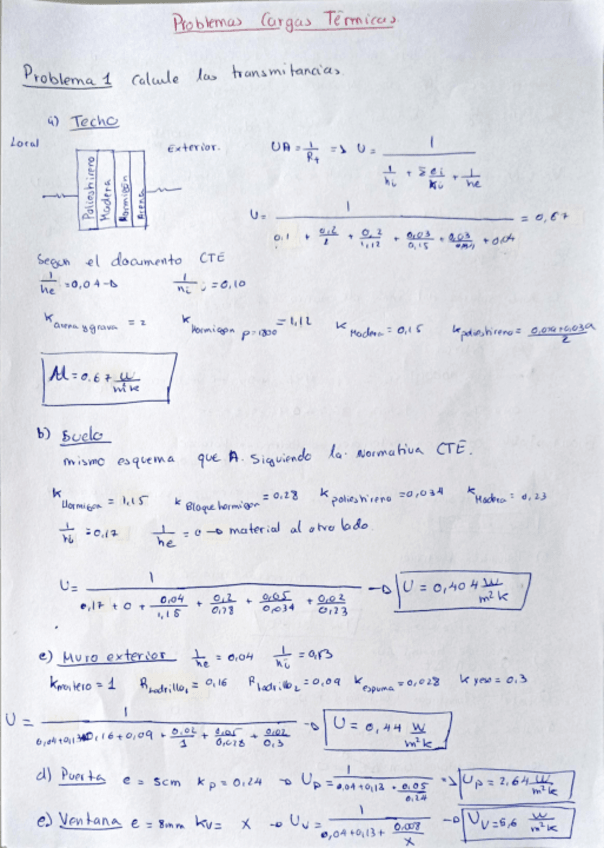 Problemas Cargas Térmicas
Problema 1 Calcule las transmitancias.
a) Techo
Local
Poliestireno
Madera
Hormigón
Arena
Exterior.
UA = 1/R_t => U = 1 / (1/hi + Σ ei/ki + 1/he)
U = 1 / (0.1 + 0,2/2 + 0,2/1,12 + 0,03/0,15 + 0,03/ + 0,04) = 0,67
Segun el documento CTE
1/he = 0,04 → 1/hi = 0,10
K arena y grava = 2 K Hormigon = 1,12 K Madera = 0,15 K poliestireno = /2
M = 0,67 W/m²K
b) Suelo
mismo esquema que A. Siguiendo la normativa CTE.
K Hormigon = 1,15 K Bloque hormigon = 0,28 K poliestireno = 0,034 K Madera = 0,23
1/hi = 0,17 1/he = 0 → material al otro lado
U = 1 / (0,17 + 0 + 0,04/1,15 + 0,2/0,28 + 0,05/0,034 + 0,02/0,23) → U = 0,404 W/m²K
c) Muro exterior 1/he = 0,04 1/hi = 0,13
K mortero = 1 R ladrillo1 = 0,16 R ladrillo2 = 0,09 K espuma = 0,028 K yeso = 0.3
U = 1 / (0,04+0,13+0,16+0,09 + 0,02/1 + 0,05/0,028 + 0,02/0,3) → U = 0,44 W/m²K
d) Puerta e = 5cm Kp = 0,24 → Up = 1 / (0,04+0,13 + 0,05/0,24) → Up = 2,64 W/m²K
e) Ventana e = 8mm Kv = X → Uv = 1 / (0,04+0,13+ 0,008/X) → Uv = 5,6 W/m²K